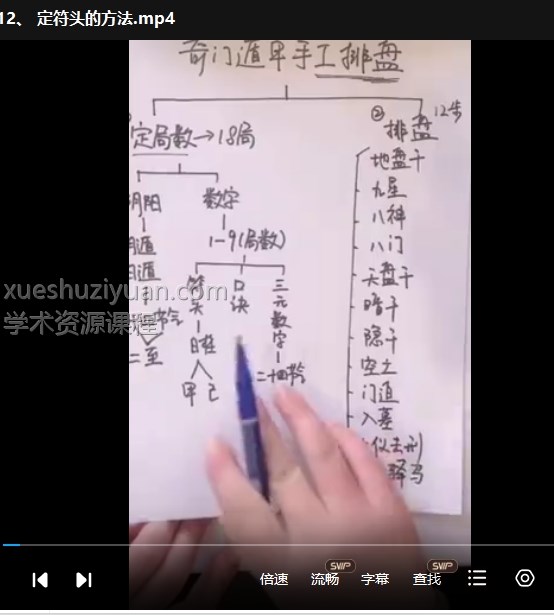 12、 定符头的方法.mp4
奇门遁甲手工排盘
定局数→18局
② 排盘 12步
阴阳
数字
1-9(局数)
符头
口诀
三元数字
日柱
甲己
二十四节令
二至
地盘干
九星
八神
八门
天盘干
暗干
隐干
空亡
门迫
入墓
xueshuziyuan.com
学术资源课程
倍速
流畅
SWP
字幕
查找
SWP